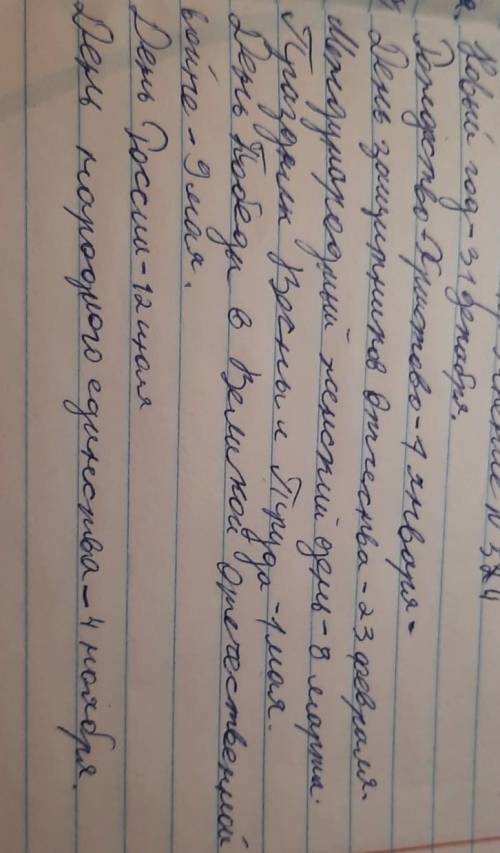 № 374
Новый год - 31 декабря.
Рождество Христово - 7 января.
День защитников Отчества - 23 февраля.
Международный женский день - 8 марта.
Праздник Весны и Труда - 1 мая.
День Победы в Великой Отечественной
войне - 9 мая.
День России - 12 июля
День народного единства - 4 ноября.